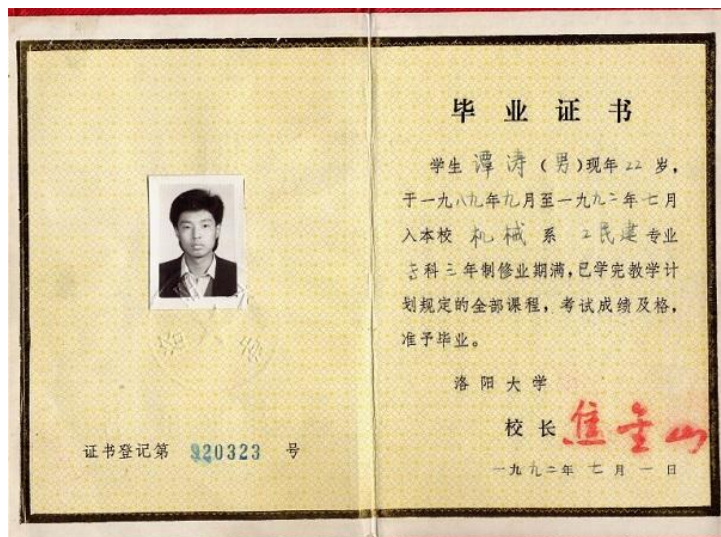 证书登记第 920323 号
毕业证书
学生 谭涛（男）现年 22 岁，
于一九八九年九月至一九九二年七月
入本校 机械 系 工民建 专业
专科三年制修业期满，已学完教学计
划规定的全部课程，考试成绩及格，
准予毕业。
洛阳大学
校长 焦金山
一九九二年 七 月 一 日